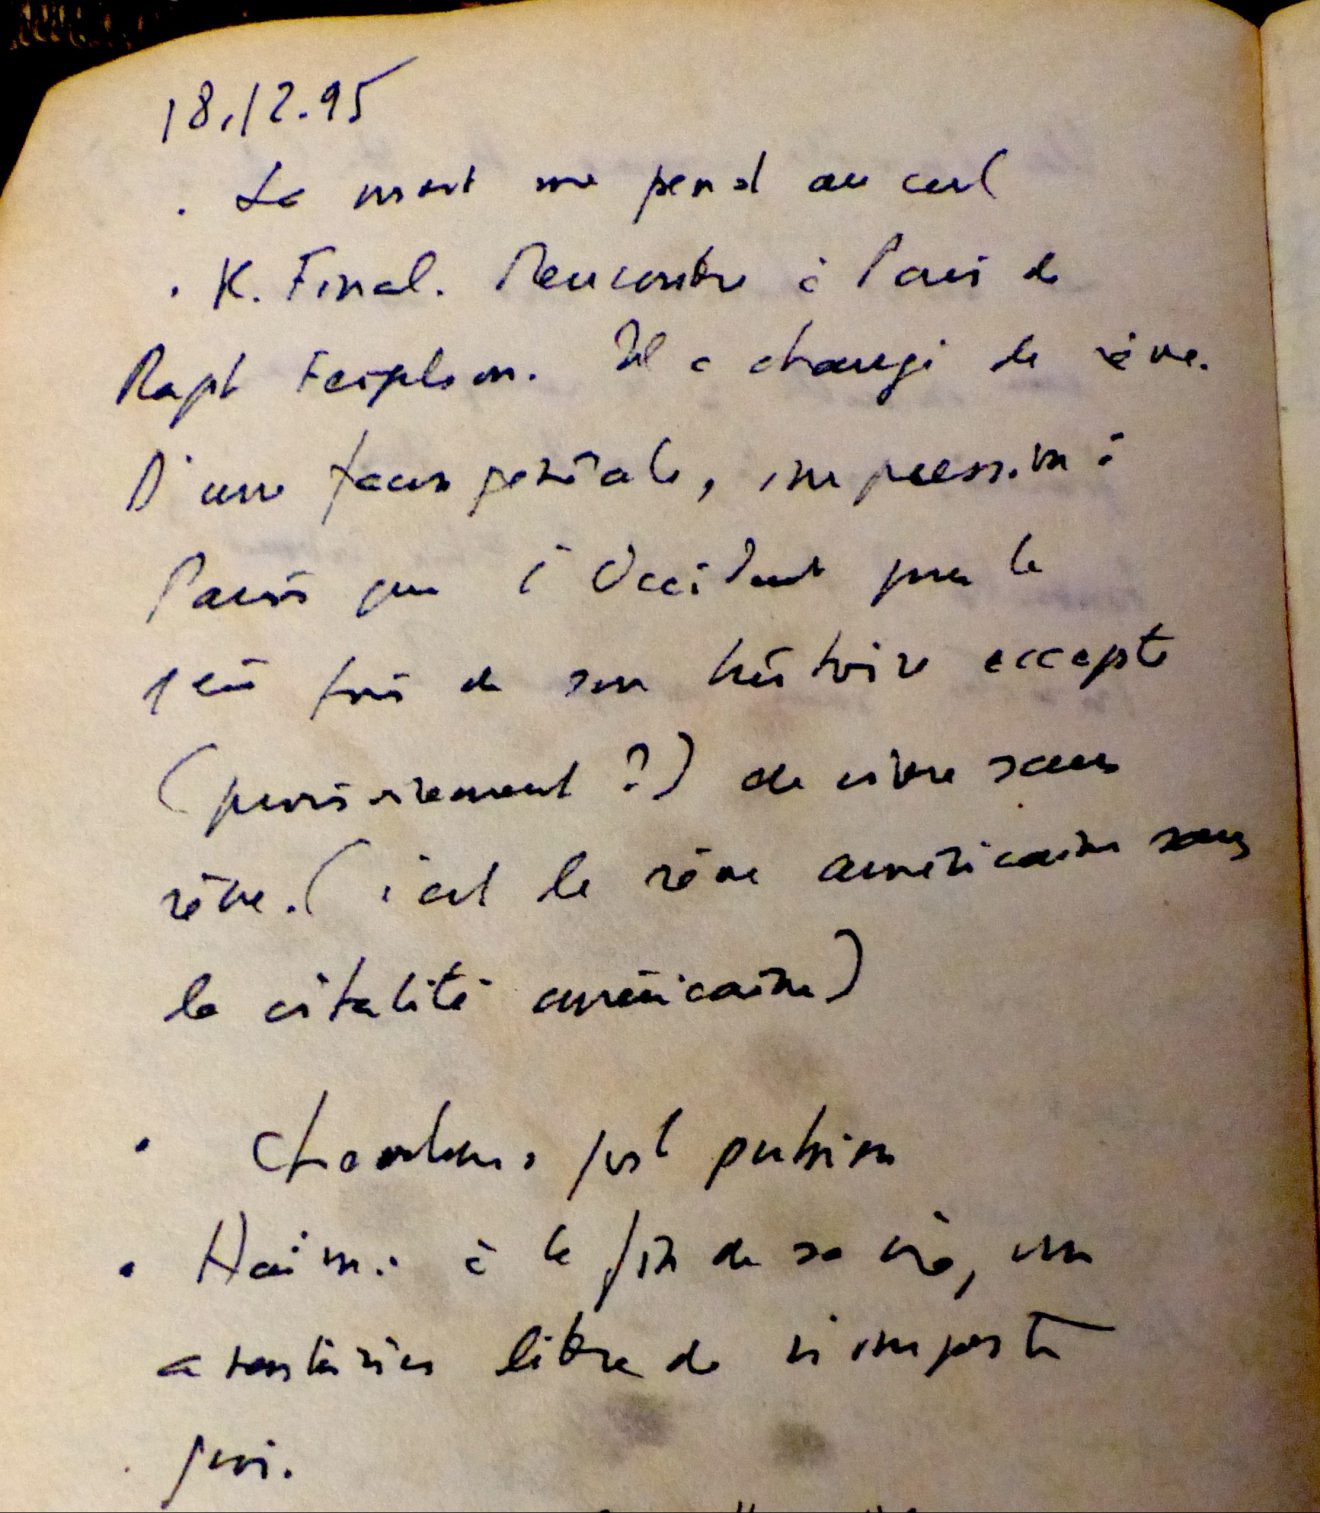 18.12.95
. La mort me pend au cul
. K. Final. Rencontre à Paris de
Raph. Il a changé de rêve.
D'une façon générale, impression à
Paris que l'Occident pour la
1ère fois de son histoire accepte
(provisoirement ?) de vivre sans
rêve. (c'est le rêve américain sans
la vitalité américaine)
. post pulsion
. Haïm : à la fin de sa vie, un
aventurier libre de n'importe
quoi.